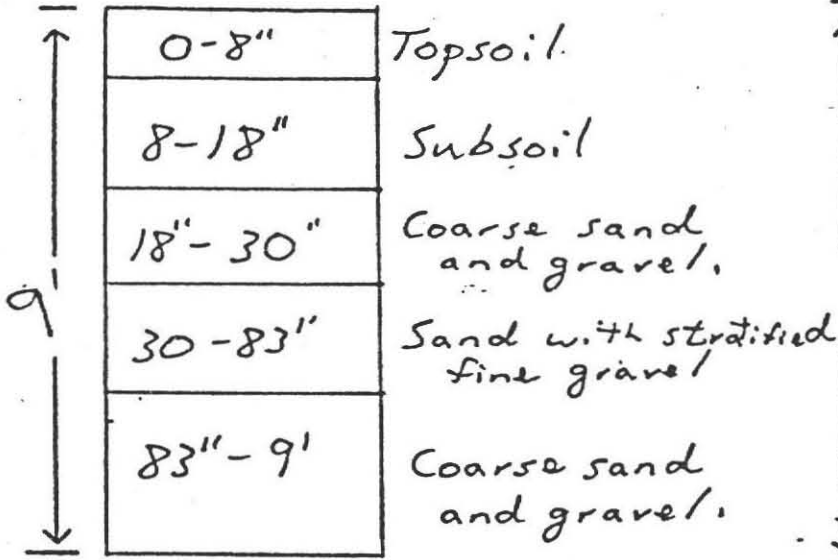 0-8" Topsoil.
8-18" Subsoil
18"-30" Coarse sand
and gravel.
9'
30-83" Sand with stratified
fine gravel
83"-9' Coarse sand
and gravel.